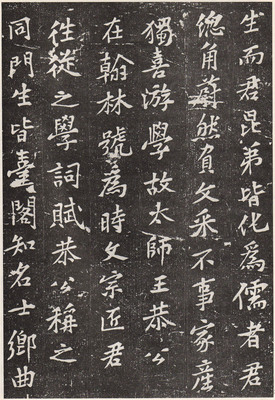 生而君昆弟皆化為儒者君
總角蔚然有文采不事家產
獨喜游學故太師王恭公
在翰林號為時文宗匠君
往從之學詞賦恭公稱之
同門生皆臺閣知名士鄉曲